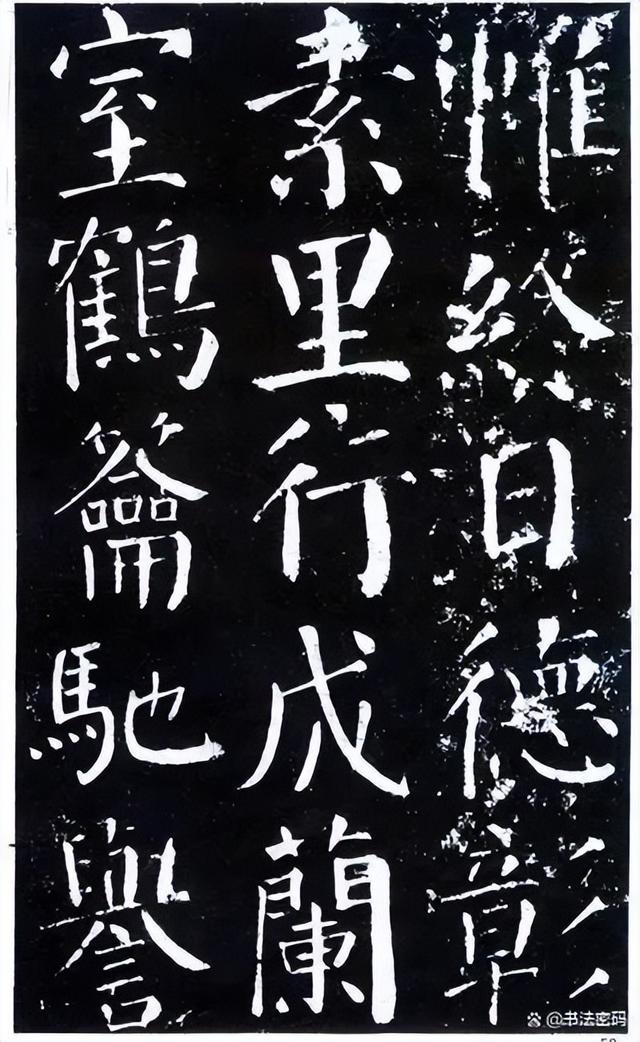 惟終日德彰
素里行成蘭
室鶴籥馳譽
@书法密码